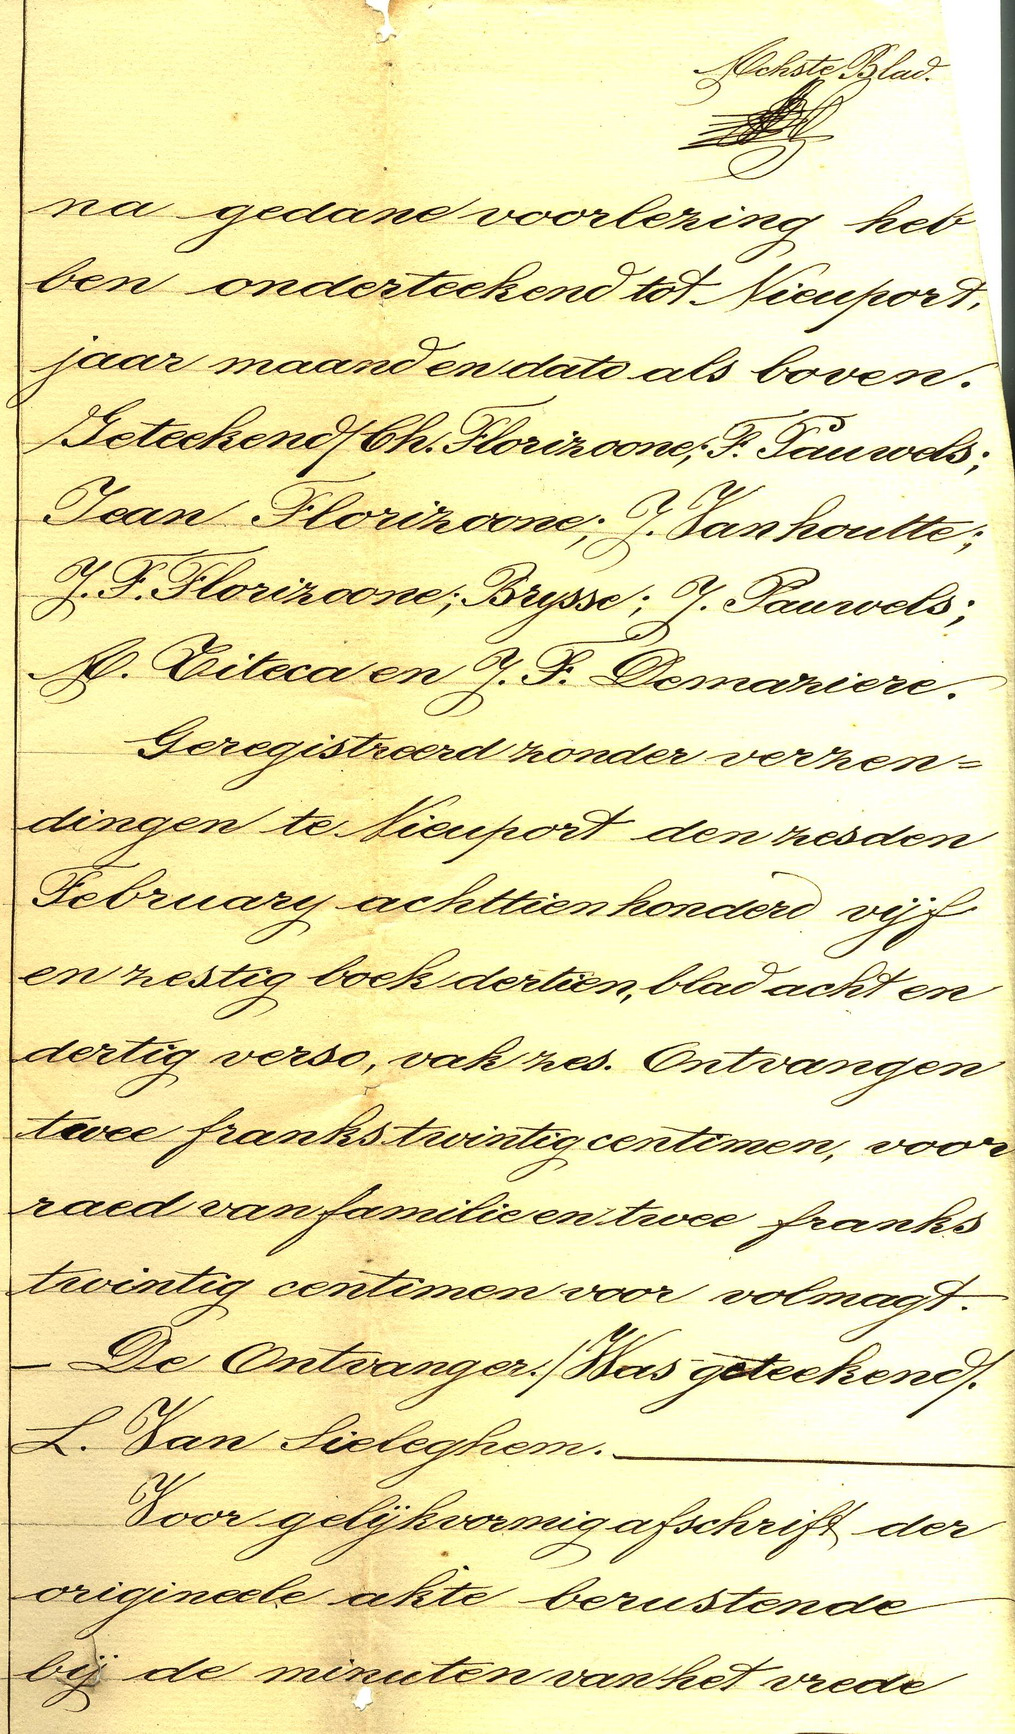 Achste Blad.
na gedane voorlezing heb
ben onderteekend tot Nieuport,
jaar maand en dato als boven.
/Geteekend/ Ch. Florizoone; F. Pauwels;
Jean Florizoone; J. Vanhoutte;
J. F. Florizoone; Brysse; J. Pauwels;
M. Titeca en J. F. Demaziere.
Geregistreerd zonder verzen=
dingen te Nieuport den zesden
February achttienhonderd vijf
en zestig boek dertien, blad acht en
dertig verso, vak zes. Ontvangen
twee franks twintig centimen, voor
raed van familie en twee franks
twintig centimen voor volmagt.
— De Ontvanger. /Was geteekend/.
L. Van Sieleghem.
Voor gelijkvormig afschrift der
origineele akte berustende
bij de minuten van het vrede